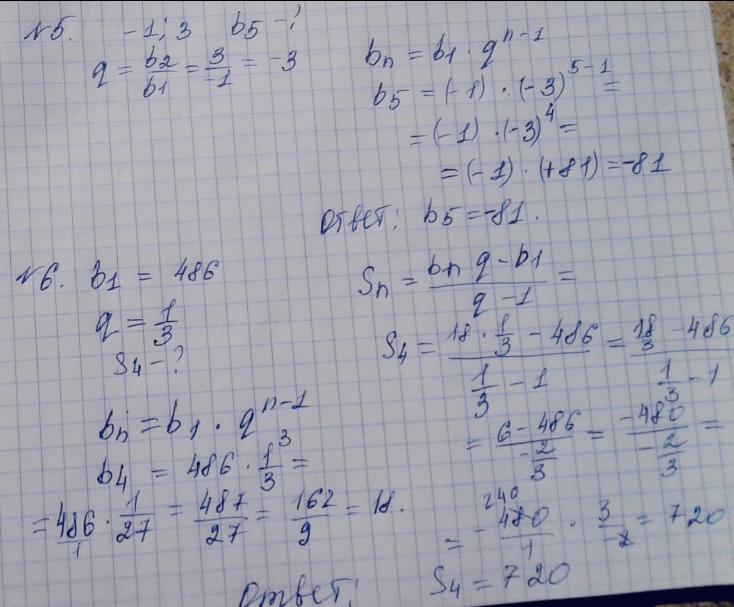 №5. -1; 3 b5 - ?
q = b2/b1 = 3/-1 = -3
bn = b1 · q^n-1
b5 = (-1) · (-3)^5-1 =
= (-1) · (-3)^4 =
= (-1) · (+81) = -81
Ответ: b5 = -81.
№6. b1 = 486
q = 1/3
S4 - ?
bn = b1 · q^n-1
b4 = 486 · 1/3^3 =
= 486/1 · 1/27 = 487/27 = 162/9 = 18.
Sn = bn q - b1 / q - 1 =
S4 = 18 · 1/3 - 486 / 1/3 - 1 = 18/3 - 486 / 1/3 - 1
= 6 - 486 / -2/3 = -480 / -2/3 =
= - 240 480/1 · 3/-2 = 720
S4 = 720
Ответ: